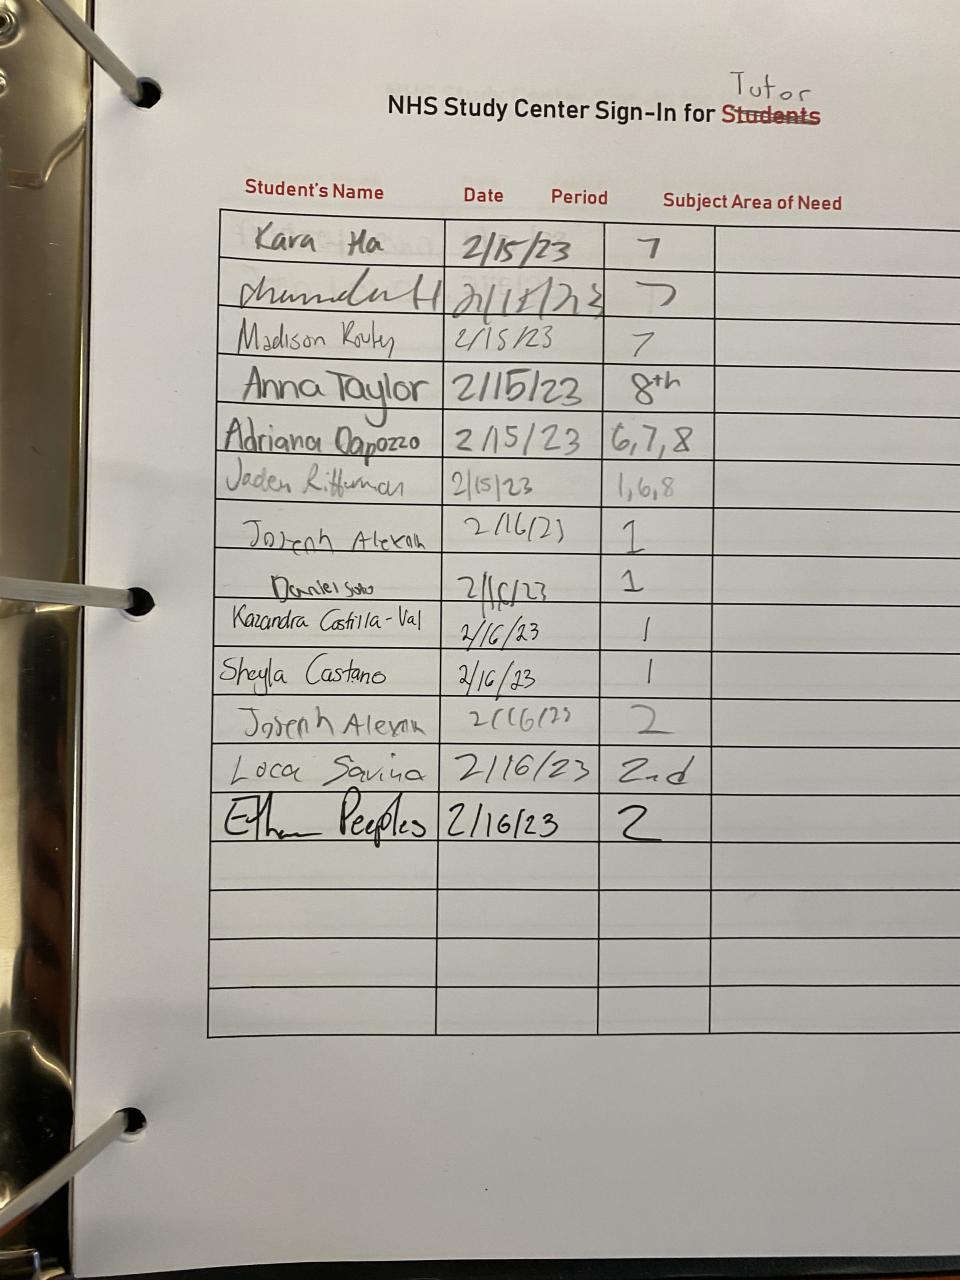 Tutor
NHS Study Center Sign-In for Students
Student's Name Date Period Subject Area of Need
Kara Ha 2/15/23 7
2/15/23 7
Madison 2/15/23 7
Anna Taylor 2/15/23 8th
Adriana Dapozzo 2/15/23 6,7,8
Jaden 2/15/23 1,6,8
Joseph 2/16/23 1
Daniel Soto 2/16/23 1
Kazandra Castilla-Val 2/16/23 1
Sheyla Castano 2/16/23 1
Joseph 2/16/23 2
Luca Savina 2/16/23 2nd
Ethan Peeples 2/16/23 2